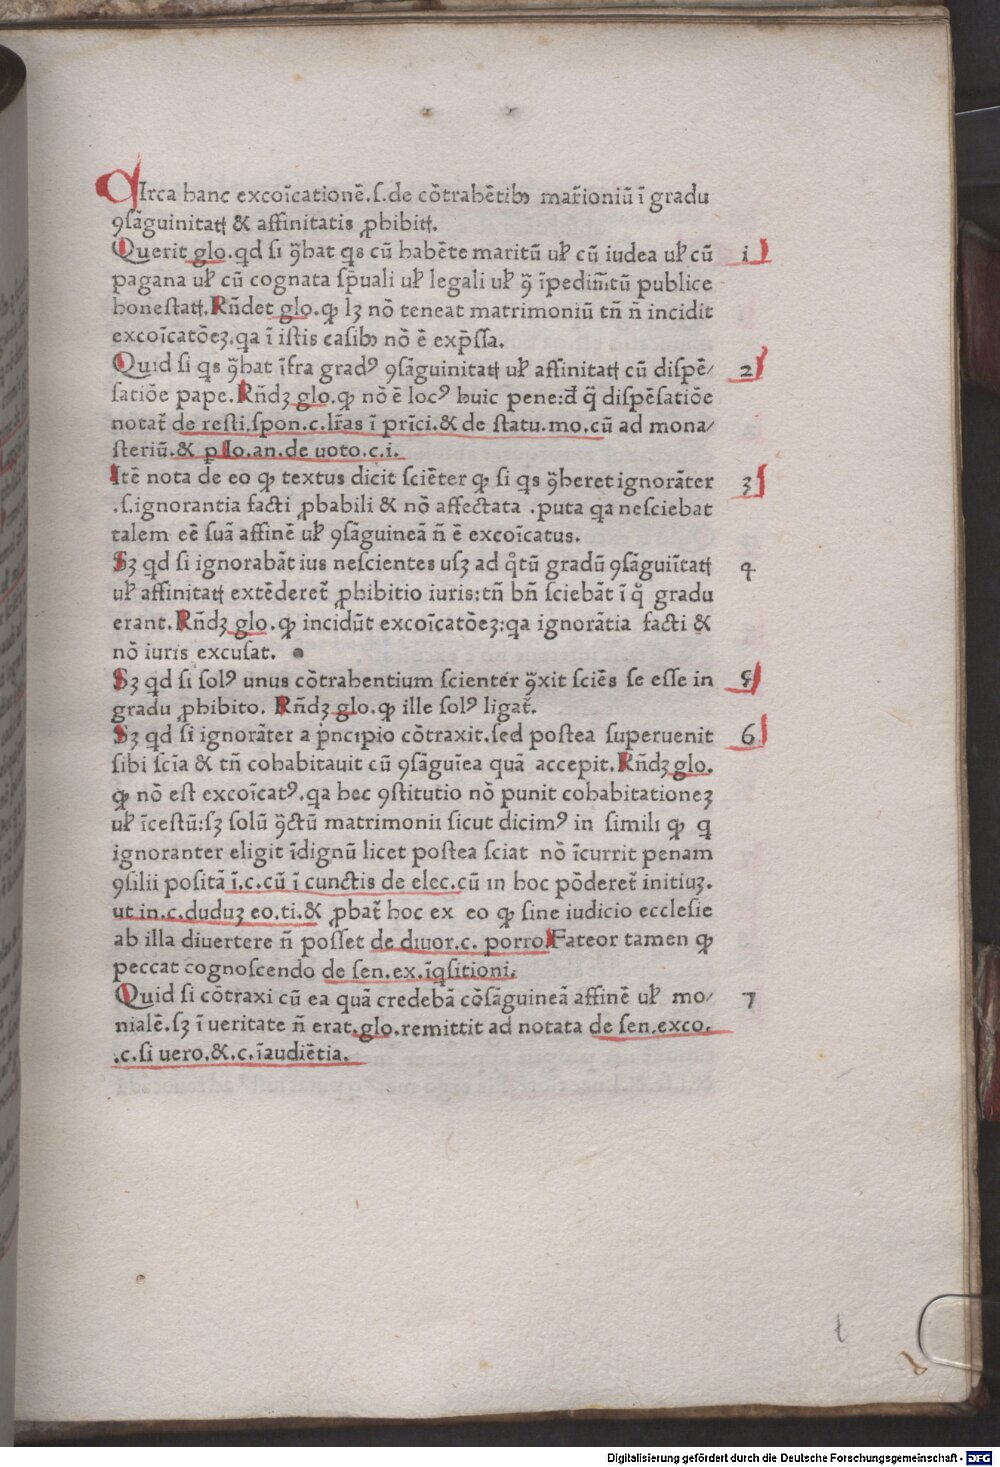 CIrca hanc excoĩcationẽ.s.de cõtrahẽtibꝫ mat̃ioniũ ĩ gradu
ꝯsãguinitatꝭ & affinitatis ꝓhibitꝭ.
Querit glo.qd si ꝯ̃hat qs cũ habẽte maritũ uꝉ cũ iudea uꝉ cũ 1
pagana uꝉ cũ cognata sp̃uali uꝉ legali uꝉ ꝯ̃ ĩpedim̃tũ publice
honestatꝭ.Rñdet glo.ꝙ lꝫ nõ teneat matrimoniũ tñ ñ incidit
excoĩcatõeꝫ.qa ĩ istis casibꝫ nõ ẽ exp̃ssa.
Quid si qs ꝯ̃hat ĩfra gradꝰ ꝯsãguinitatꝭ uꝉ affinitatꝭ cũ dispẽ/ 2
satiõe pape.Rñdꝫ glo.ꝙ nõ ẽ locꝰ huic pene:đ q̃ dispẽsatiõe
notat̃ de resti.spon.c.lr̃as ĩ prĩci.& de statu.mo.cũ ad mona/
steriũ.& ꝑ Io.an.de uoto.c.i.
Itẽ nota de eo ꝙ textus dicit sciẽter ꝙ si qs ꝯ̃heret ignorãter 3
.s.ignorantia facti ꝓbabili & nõ affectata .puta qa nesciebat
talem eẽ suã affinẽ uꝉ ꝯsãguineã ñ ẽ excoĩcatus.
Sꝫ qd si ignorabãt ius nescientes usꝫ ad q̊tũ gradũ ꝯsãguiĩtatꝭ 4
uꝉ affinitatꝭ extẽderet̃ ꝓhibitio iuris:tñ bñ sciebãt ĩ q̊ gradu
erant.Rñdꝫ glo.ꝙ incidũt excoĩcatõeꝫ:qa ignorãtia facti &
nõ iuris excusat.
Sꝫ qd si solꝰ unus cõtrahentium scienter ꝯ̃xit sciẽs se esse in 5
gradu ꝓhibito. Rñdꝫ glo.ꝙ ille solꝰ ligat̃.
Sꝫ qd si ignorãter a p̃ncipio cõtraxit.sed postea superuenit 6
sibi scĩa & tñ cohabitauit cũ ꝯsãguĩea quã accepit.Rñdꝫ glo.
ꝙ nõ est excoĩcatꝰ.qa hec ꝯstitutio nõ punit cohabitationeꝫ
uꝉ ĩcestũ:sꝫ solũ ꝯ̃ctũ matrimonii sicut dicimꝰ in simili ꝙ q
ignoranter eligit ĩdignũ licet postea sciat nõ ĩcurrit penam
ꝯsilii positã ĩ.c.cũ ĩ cunctis de elec.cũ in hoc põderet̃ initiuꝫ.
ut in.c.duduꝫ eo.ti.& ꝓbat̃ hoc ex eo ꝙ sine iudicio ecclesie
ab illa diuertere ñ posset de diuor.c. porro.Fateor tamen ꝙ
peccat cognoscendo de sen.ex.ĩqsitioni.
Quid si cõtraxi cũ ea quã credebã cõsãguineã affinẽ uꝉ mo/ 7
nialẽ.sꝫ ĩ ueritate ñ erat.glo.remittit ad notata de sen.exco.
.c.si uero.&.c.ĩaudiẽtia.
Digitalisierung gefördert durch die Deutsche Forschungsgemeinschaft - DFG